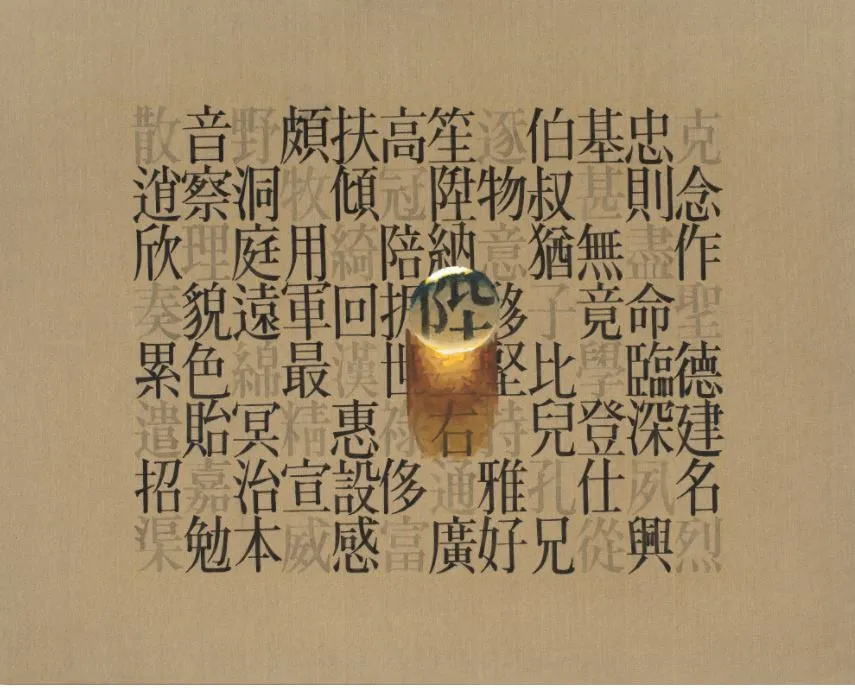 克念作聖德建名烈
忠則盡命臨深夙興
基甚無竟學登仕從
伯叔猶子比兒孔兄
逐物意移堅持雅好
笙陞納陛右通廣
高冠陪振世祿侈富
扶傾綺回漢惠設感
頗牧用軍最精宣威
野洞庭遠綿冥治本
音察理貌色貽嘉勉
散逍欣奏累遣招渠